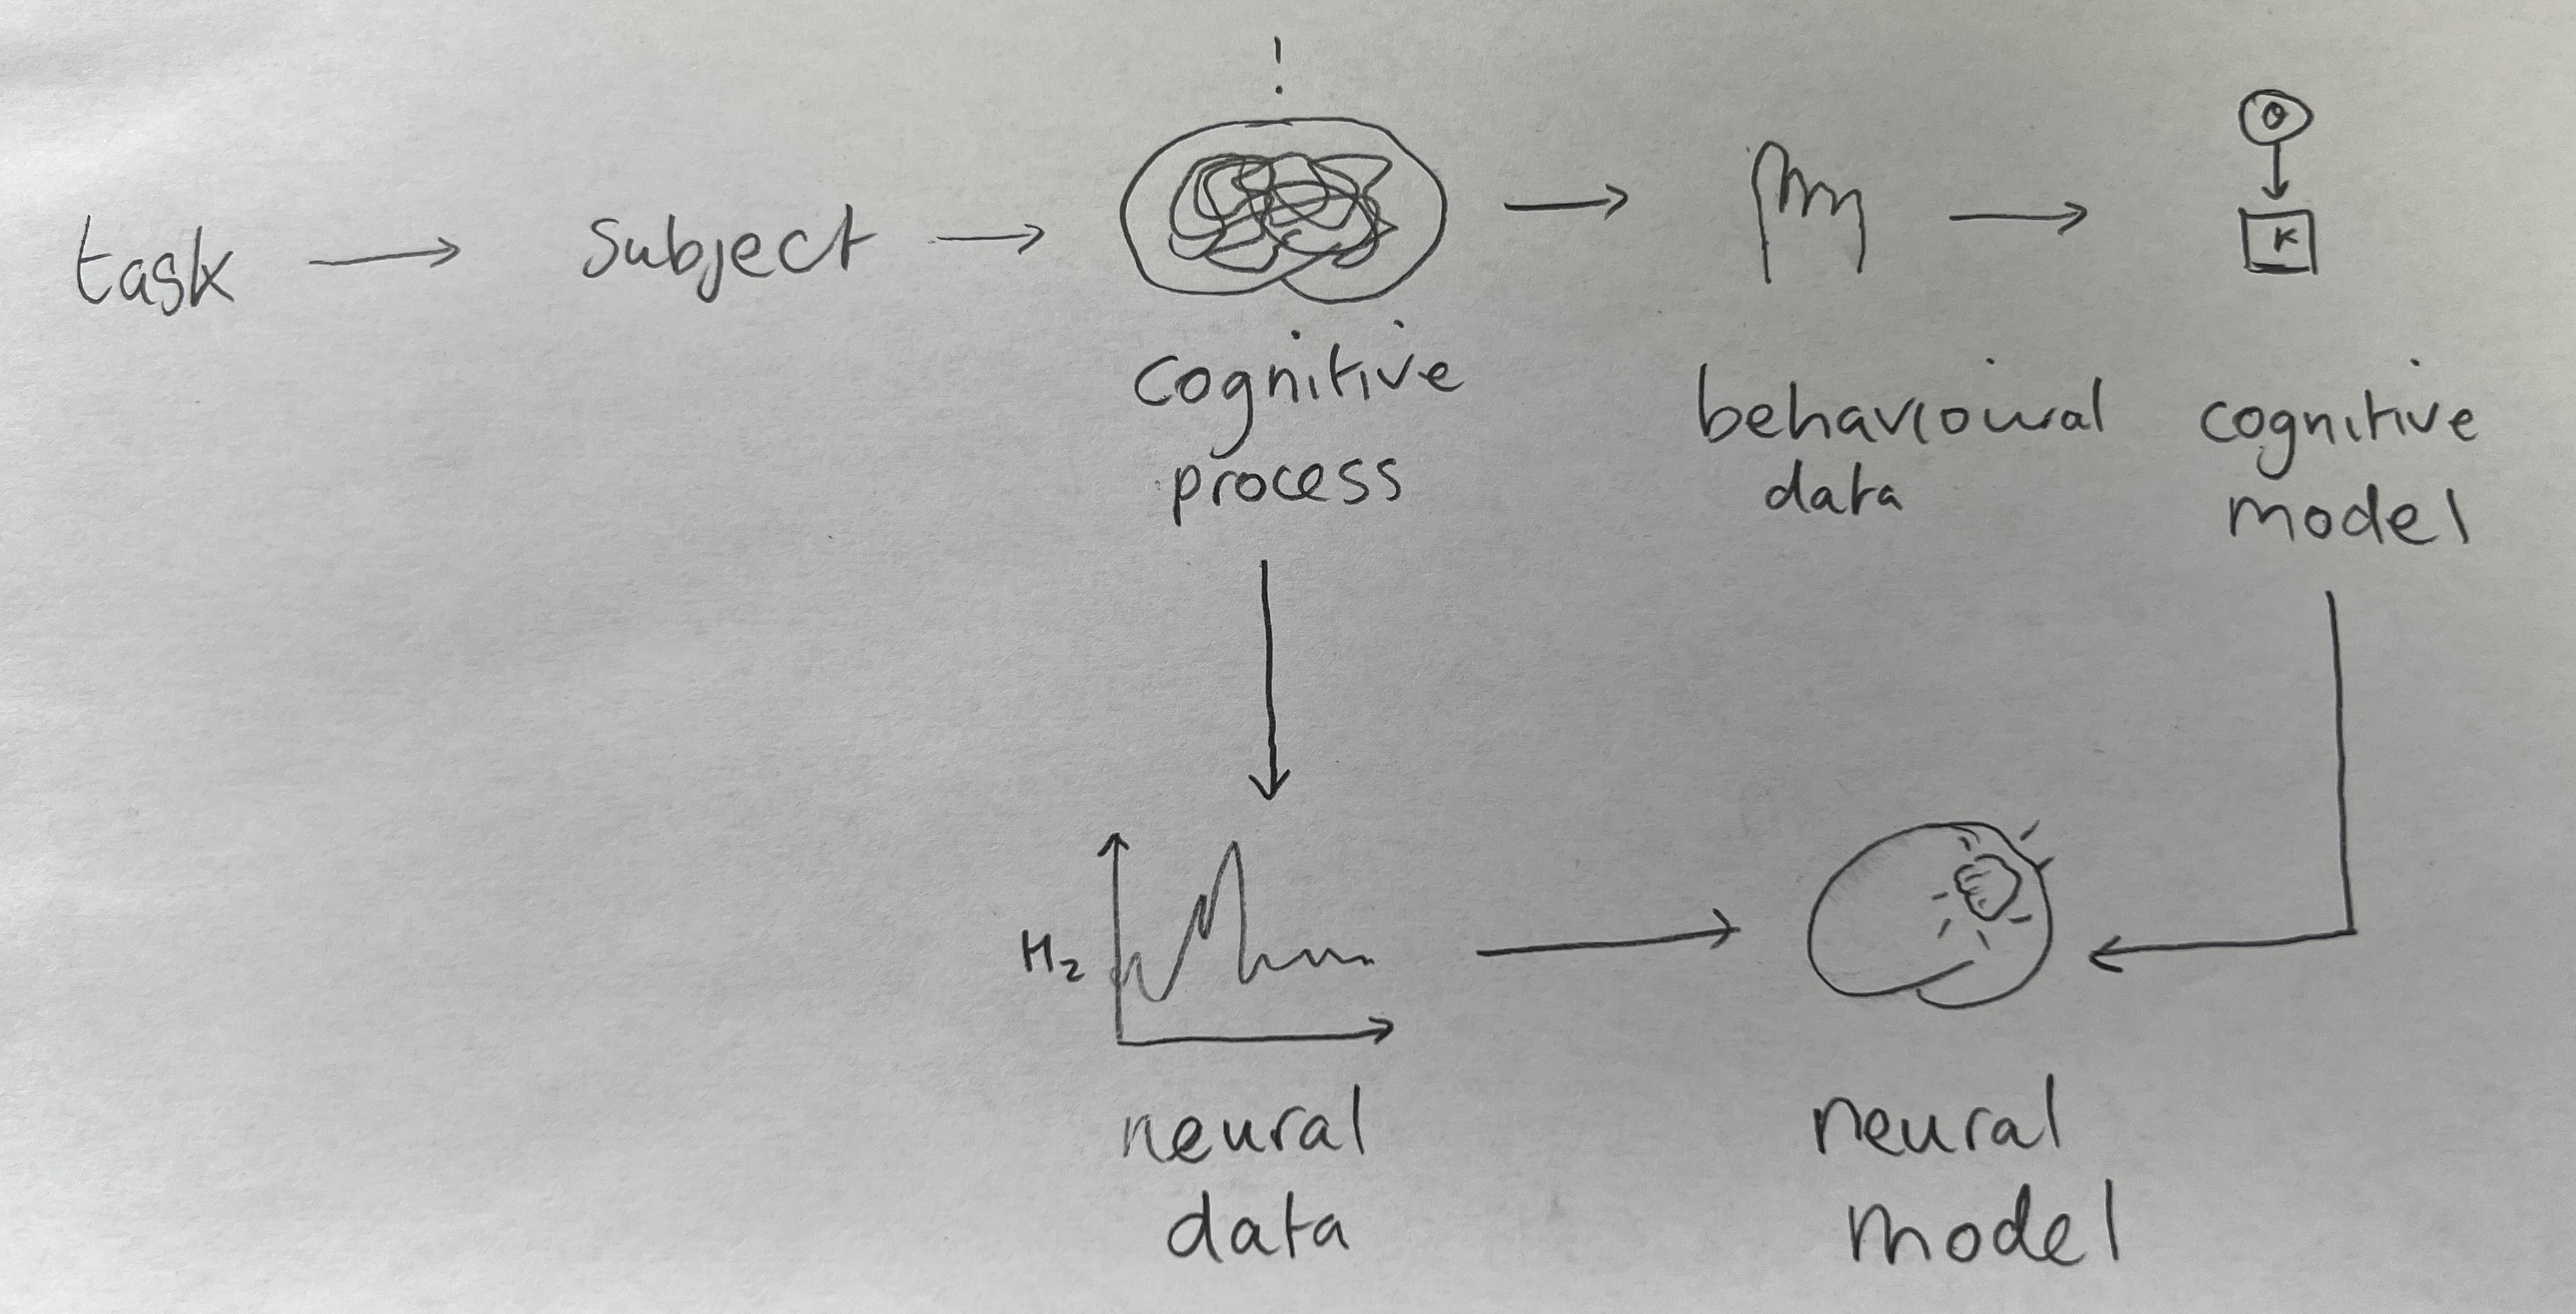 !
θ
K
task
subject
cognitive
process
behavioural
data
cognitive
model
Hz
neural
data
neural
model